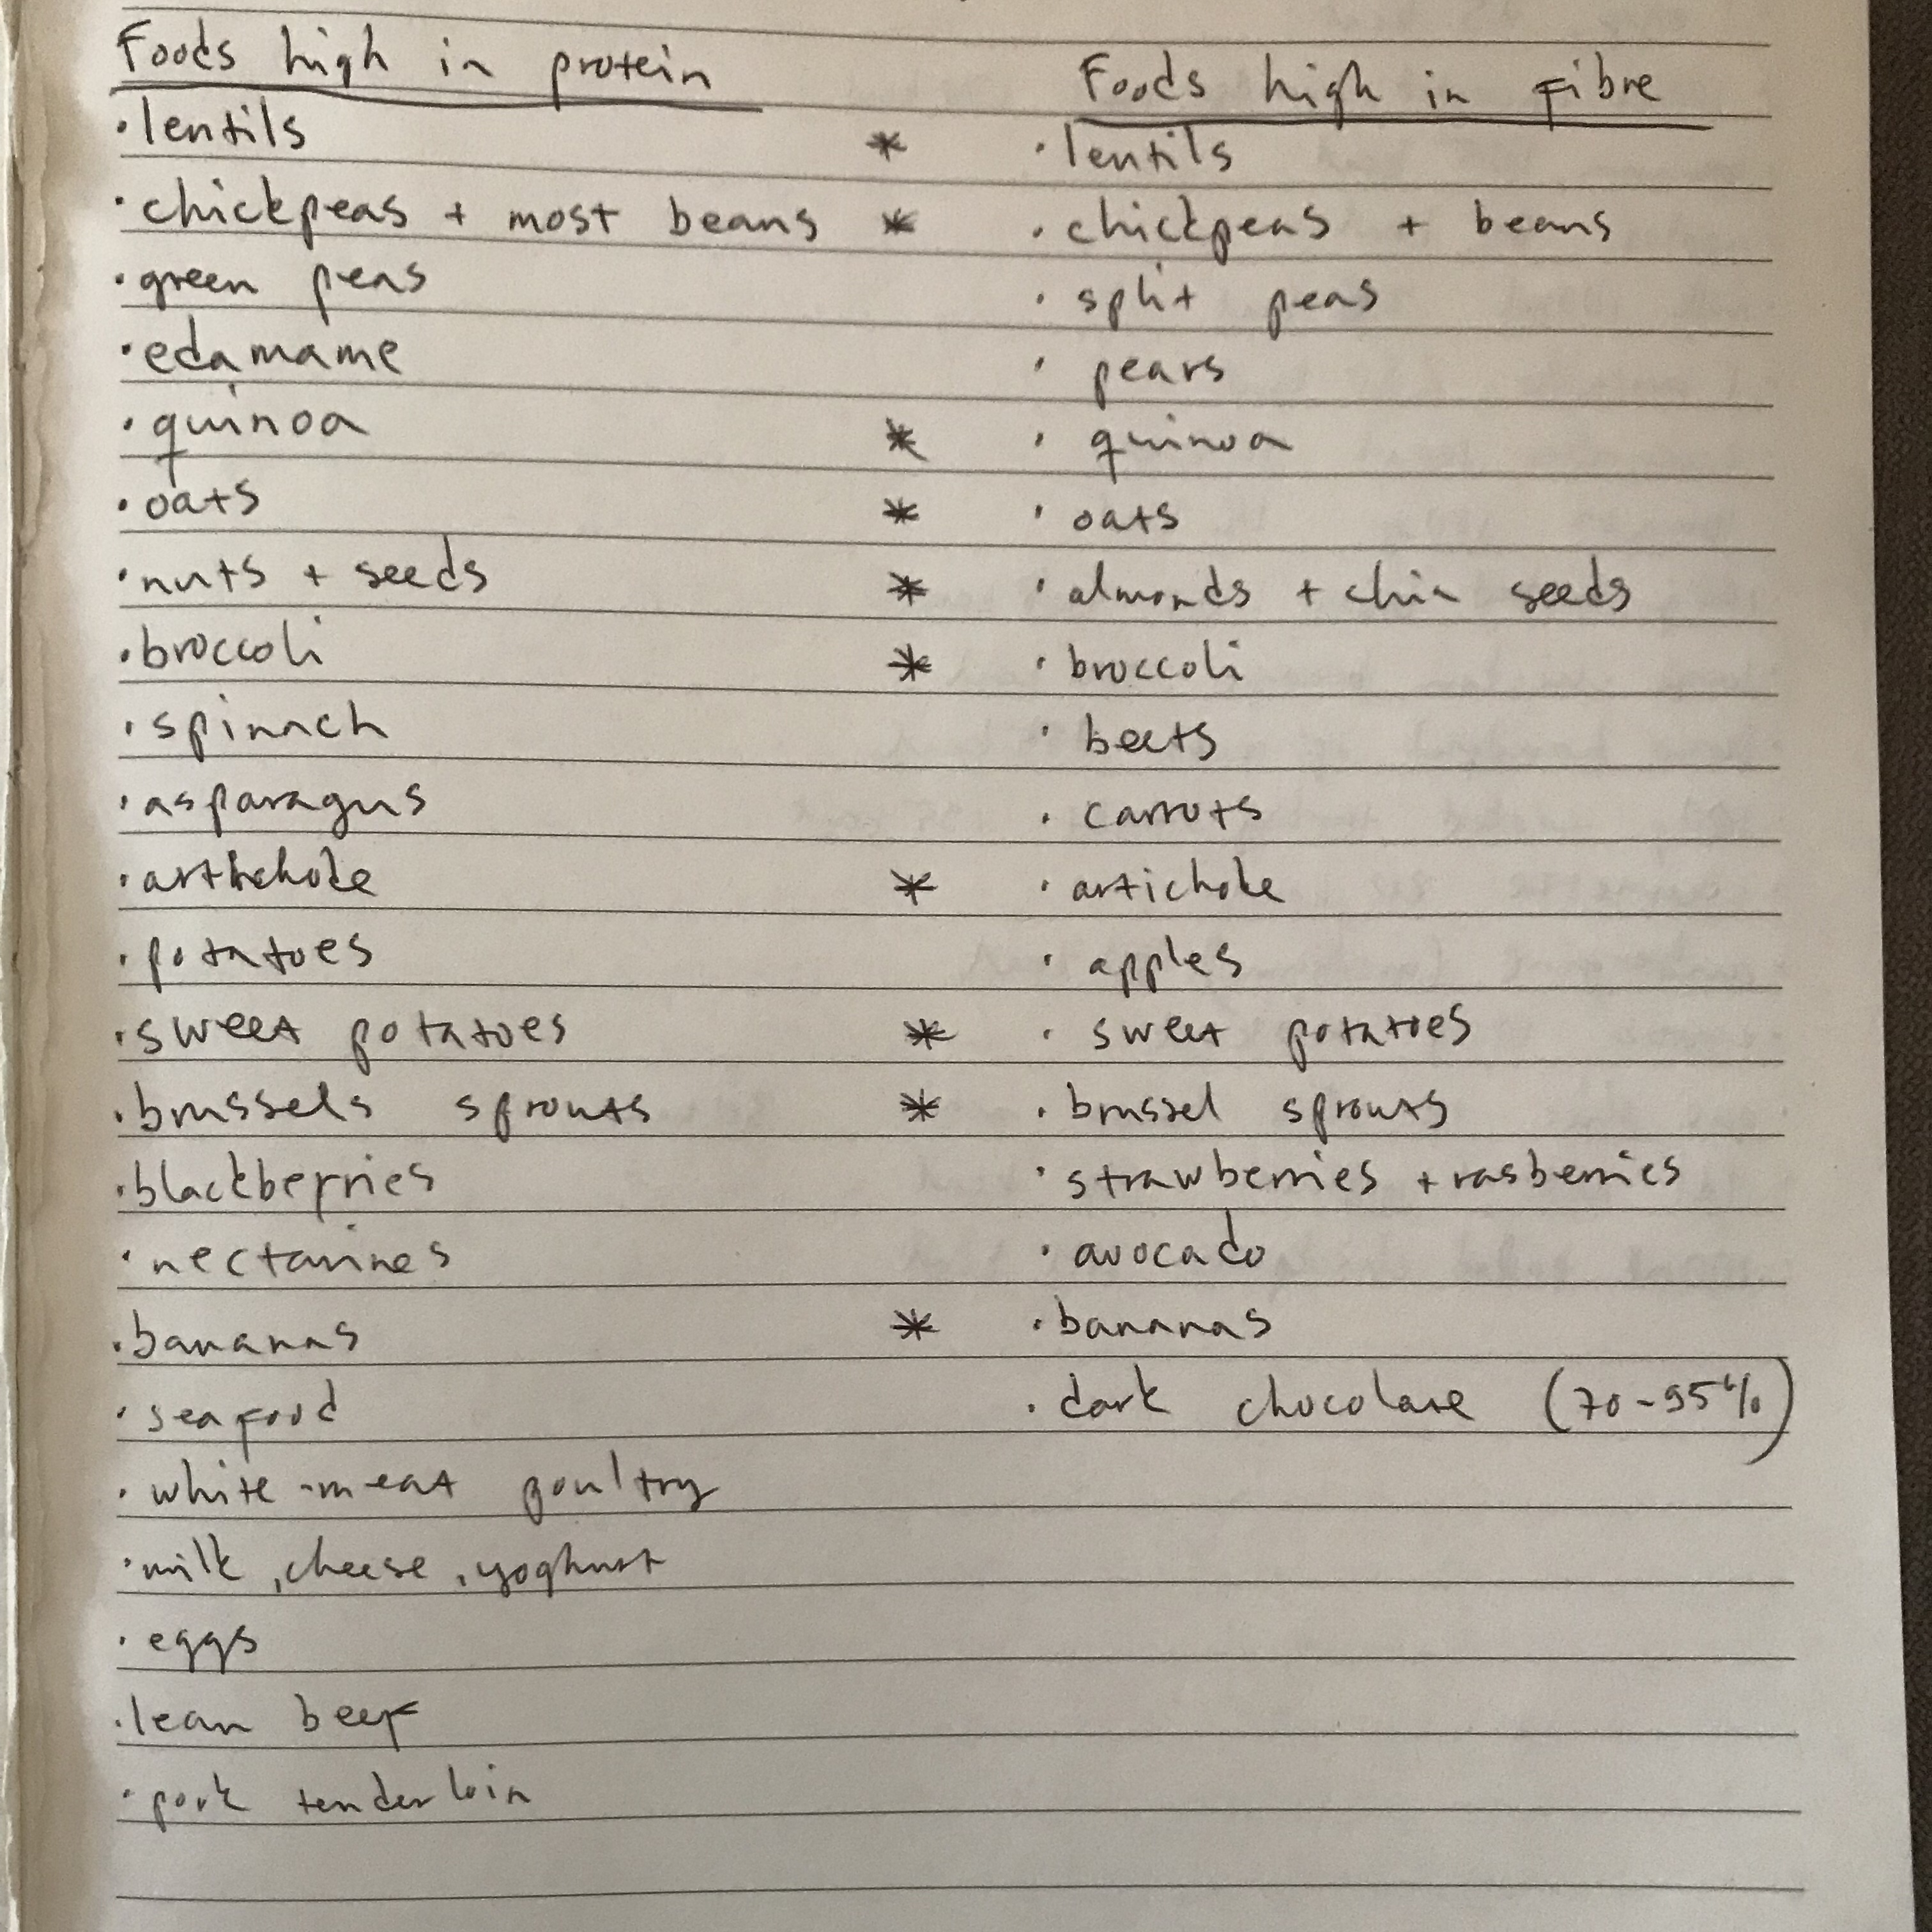 Foods high in protein
Foods high in fibre
·lentils * ·lentils
·chickpeas + most beans * ·chickpeas + beans
·green peas ·split peas
·edamame ·pears
·quinoa * ·quinoa
·oats * ·oats
·nuts + seeds * ·almonds + chia seeds
·broccoli * ·broccoli
·spinach ·beets
·asparagus ·carrots
·artichoke * ·artichoke
·potatoes ·apples
·sweet potatoes * ·sweet potatoes
·brussels sprouts * ·brussel sprouts
·blackberries ·strawberries + rasberries
·nectarines ·avocado
·bananas * ·bananas
·seafood ·dark chocolate (70-95%)
·white-meat poultry
·milk, cheese, yoghurt
·eggs
·lean beef
·pork tenderloin